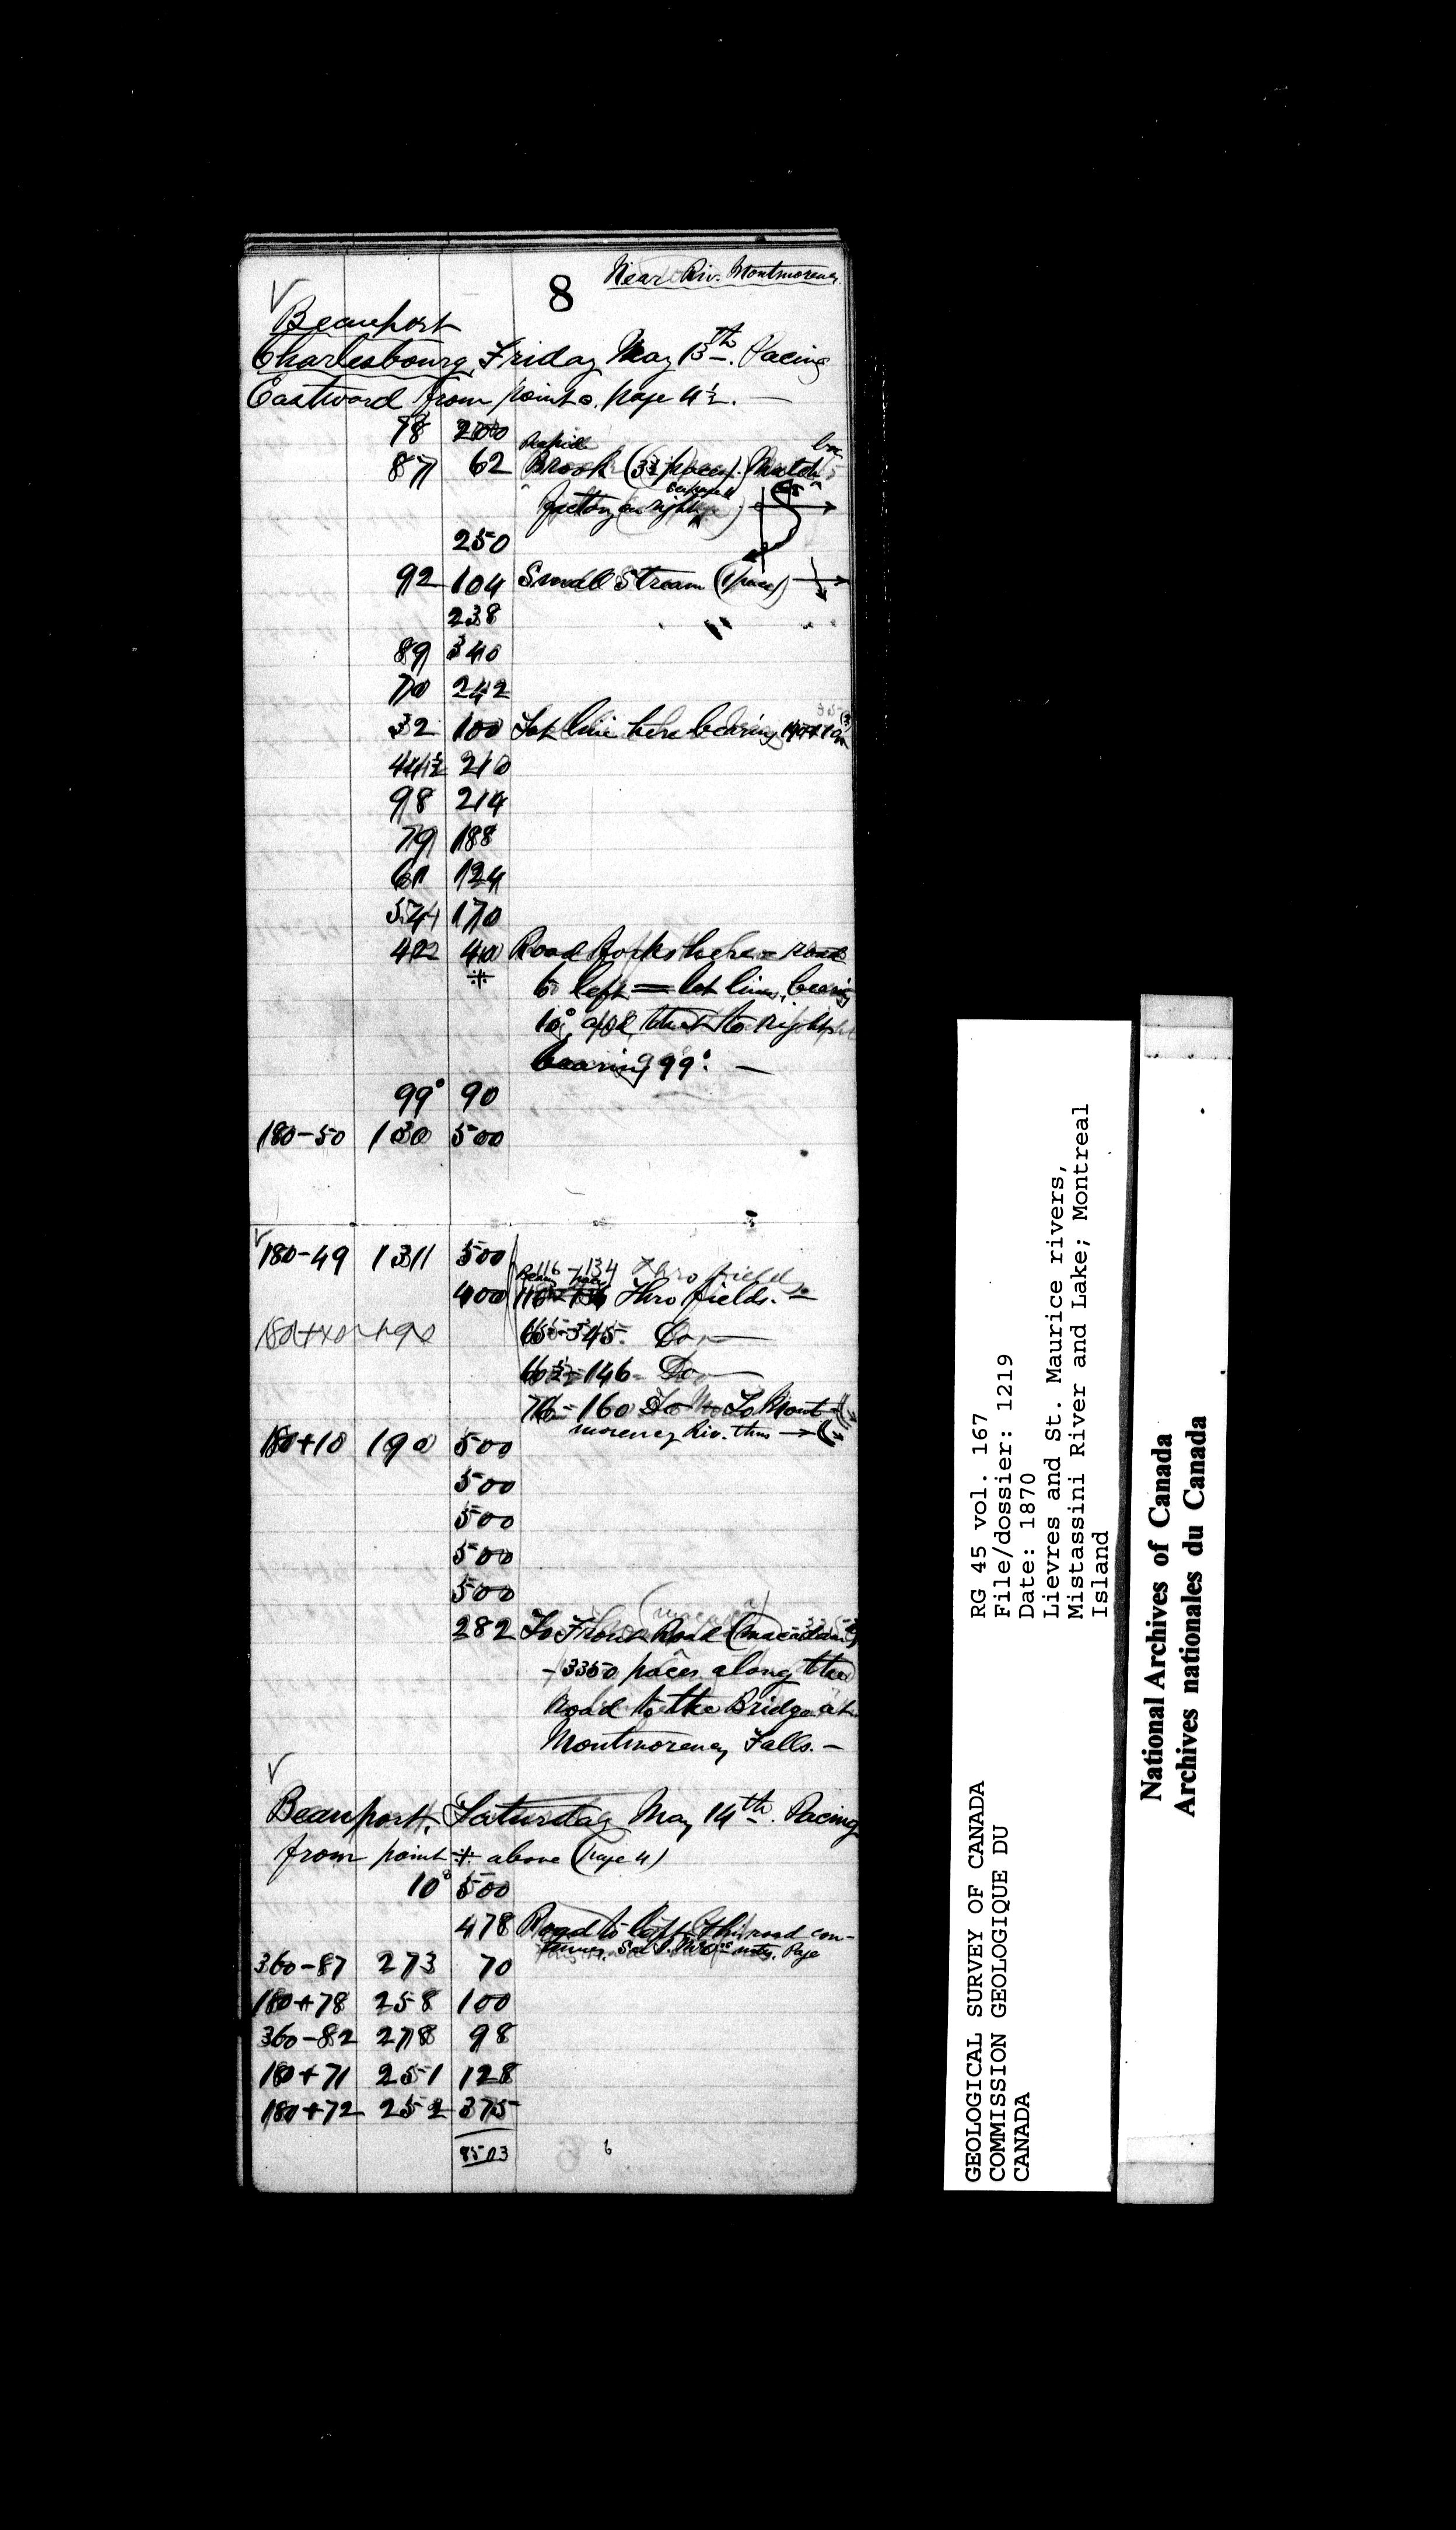 8
Near Riv. Montmorency.
Beauport
Charlesbourg, Friday May 13th. Pacing
Eastward from point page 4½. —
78 200
87 62 Brook (33 paces). Match
factory on right
250
92 104 Small Stream (1 pace)
238
89 340
70 242
32 100 Lot line here bearing
44½ 210
98 214
79 188
61 124
54 170
42 40 Road forks here = road
to left = lot line, bearing
10°, and that to right
bearing 99°. —
99° 90
180-50 130 500
180-49 131 500 116-134 Thro fields
400 Thro fields. —
65½-345. Do —
66½-146- Do —
76-160 To Mont-
morency Riv. thus
180+10 190 500
500
500
500
500
282 To Front Road (macadam)
- 3350 paces along the
road to the Bridge at
Montmorency Falls. —
Beauport, Saturday May 14th. Pacing
from point ※ above (page 4)
10° 500
478 Road to left, this road con-
tinues. See notes. Page
360-87 273 70
180+78 258 100
360-82 278 98
180+71 251 128
180+72 252 375
8503
6
RG 45 vol. 167
File/dossier: 1219
Date: 1870
Lievres and St. Maurice rivers,
Mistassini River and Lake; Montreal
Island
GEOLOGICAL SURVEY OF CANADA
COMMISSION GEOLOGIQUE DU
CANADA
National Archives of Canada
Archives nationales du Canada